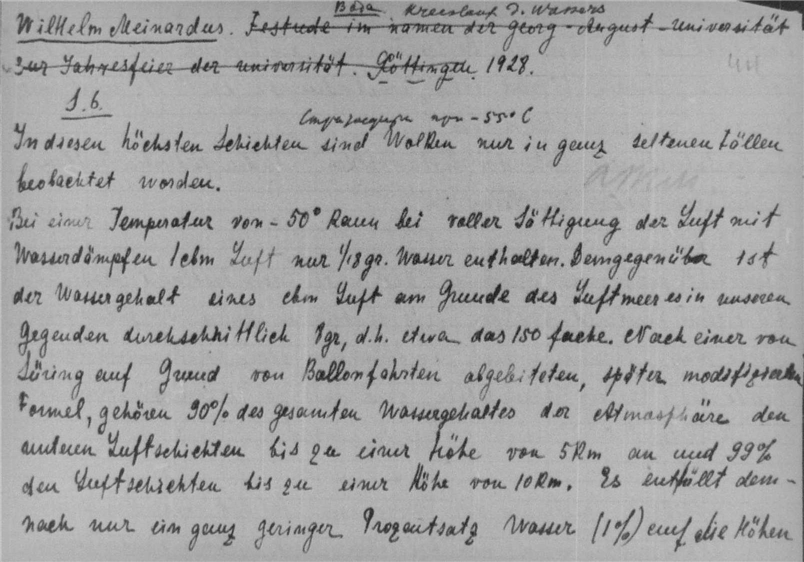 Вода Kreislauf d. Wassers
Wilhelm Meinardus. Festrede im namen der Georg-August-Universität
zur Jahresfeier der universität. Göttingen. 1928.
S. 6.
-55° C
In diesen höchsten Schichten sind Wolken nur in ganz seltenen Fällen
beobachtet worden.
Bei einer Temperatur von -50° Kann bei voller Sättigung der Luft mit
Wasserdämpfen 1 cbm Luft nur 1/18 gr. Wasser enthalten. Demgegenüber ist
der Wassergehalt eines cbm Luft am Grunde des Luftmeeres in unseren
Gegenden durchschnittlich 8 gr, d.h. etwa das 150 fache. Nach einer von
Süring auf Grund von Ballonfahrten abgeleiteten, später modifizierten
Formel, gehören 90% des gesamten Wassergehaltes der Atmosphäre den
unteren Luftschichten bis zu einer Höhe von 5 Km an und 99%
den Luftschichten bis zu einer Höhe von 10 Km. Es entfällt dem-
nach nur ein ganz geringer Prozentsatz Wasser (1%) auf die Höhen